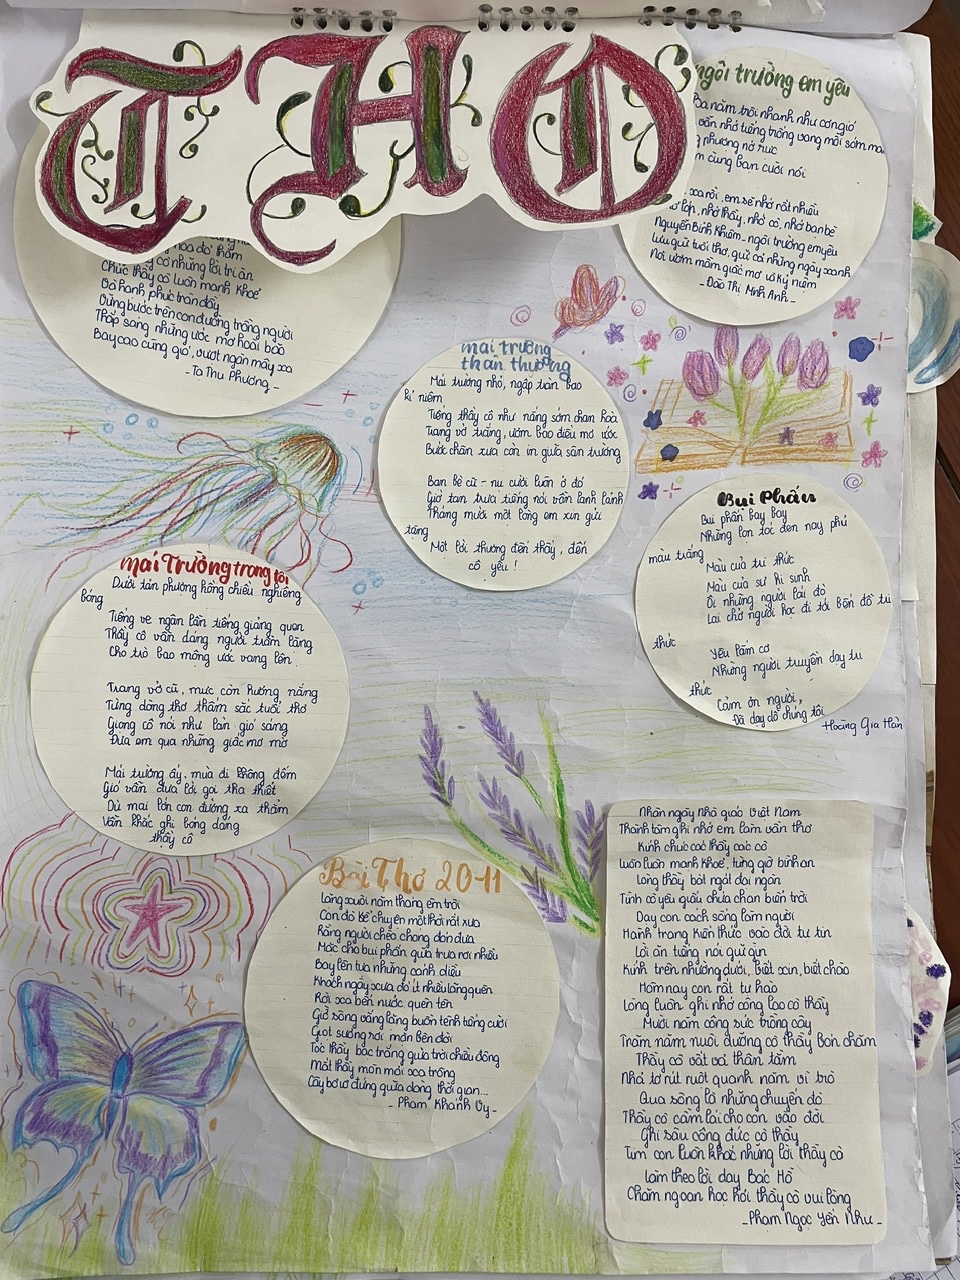 THƠ
Ngôi trường em yêu
Ba năm trôi nhanh như cơn gió
vẫn nhớ tiếng trống vang mỗi sớm mai
phương nở rực
cùng bạn cười nói
xa rồi, em sẽ nhớ rất nhiều
lớp, nhớ thầy, nhớ cô, nhớ bạn bè
Nguyễn Bỉnh Khiêm - ngôi trường em yêu
Lưu giữ tuổi thơ, giữ cả những ngày xanh
Nơi ươm mầm giấc mơ và kỷ niệm
- Đào Thị Minh Anh -
hoa đỏ thắm
cô những lời tri ân
Chúc thầy cô luôn mạnh khoẻ
Đã hạnh phúc tràn đầy
Vững bước trên con đường trồng người
Thắp sáng những ước mơ hoài bão
Bay cao cùng gió, vượt ngàn mây xa
- Tạ Thu Phương -
mái trường
thân thương
Mái trường nhỏ, ngập tràn bao
kỉ niệm
Tiếng thầy cô như nắng sớm chan hoà
Trang vở trắng, ươm bao điều mơ ước
Bước chân xưa còn in giữa sân trường
Bạn bè cũ - nụ cười luôn ở đó
Giờ tan trưa tiếng nói vẫn lanh lảnh
Tháng mười một lòng em xin gửi
tặng
Một lời thương đến thầy, đến
cô yêu!
Bụi Phấn
Bụi phấn bay bay
Những lọn tóc đen nay phủ
màu trắng
Màu của tri thức
Màu của sự hi sinh
Ôi những người lái đò
Lại chở người học đi tới bến đỗ tri
thức
Yêu lắm cơ
Những người truyền dạy tri
thức
Cảm ơn người,
Đã dạy dỗ chúng tôi
Hoàng Gia Hân
Mái Trường trong tôi
Dưới tán phượng hồng chiều nghiêng
bóng
Tiếng ve ngân lẫn tiếng giảng quen
Thầy cô vẫn dáng người trầm lặng
Cho trò bao mộng ước vang lên.
Trang vở cũ, mực còn hương nắng
Từng dòng thơ thắm sắc tuổi thơ
Giọng cô nói như làn gió sáng
Đưa em qua những giấc mơ mờ
Mái trường ấy, mùa đi không đếm
Gió vẫn đưa lời gọi tha thiết
Dù mai lớn con đường xa thẳm
Vẫn khắc ghi bóng dáng
thầy cô
Bài Thơ 20-11
Lòng xuôi năm tháng êm trôi
Con đò kể chuyện một thời rất xưa
Rằng người chèo chống đón đưa
Mặc cho bụi phấn giữa trưa rơi nhiều
Bay lên tựa những cánh diều
Khách ngày xưa đó ít nhiều lãng quên
Rời xa bến nước quên tên
Giờ sông vắng lặng buồn tênh tiếng cười
Giọt sương rơi mặn bên đời
Tóc thầy bạc trắng giữa trời chiều đông
Mắt thầy mòn mỏi xa trông
Cây bơ vơ đứng giữa dòng thời gian...
- Phạm Khánh Vy -
Nhân ngày Nhà giáo Việt Nam
Thành tâm ghi nhớ em làm vần thơ
Kính chúc các thầy các cô
Luôn luôn mạnh khoẻ, từng giờ bình an
Lòng thầy bát ngát đại ngàn
Tình cô yêu dấu chứa chan biển trời
Dạy con cách sống làm người
Hành trang kiến thức vào đời tự tin
Lời ăn tiếng nói giữ gìn
Kính trên nhường dưới, biết xin, biết chào
Hôm nay con rất tự hào
Lòng luôn ghi nhớ công lao cô thầy
Mười năm công sức trồng cây
Trăm năm nuôi dưỡng cô thầy bón chăm
Thầy cô vất vả thân tằm
Nhả tơ rút ruột quanh năm vì trò
Qua sông là những chuyến đò
Thầy cô cầm lái cho con vào đời
Ghi sâu công đức cô thầy
Tim con luôn khắc những lời thầy cô
Làm theo lời dạy Bác Hồ
Chăm ngoan học hỏi thầy cô vui lòng
- Phạm Ngọc Yến Như -